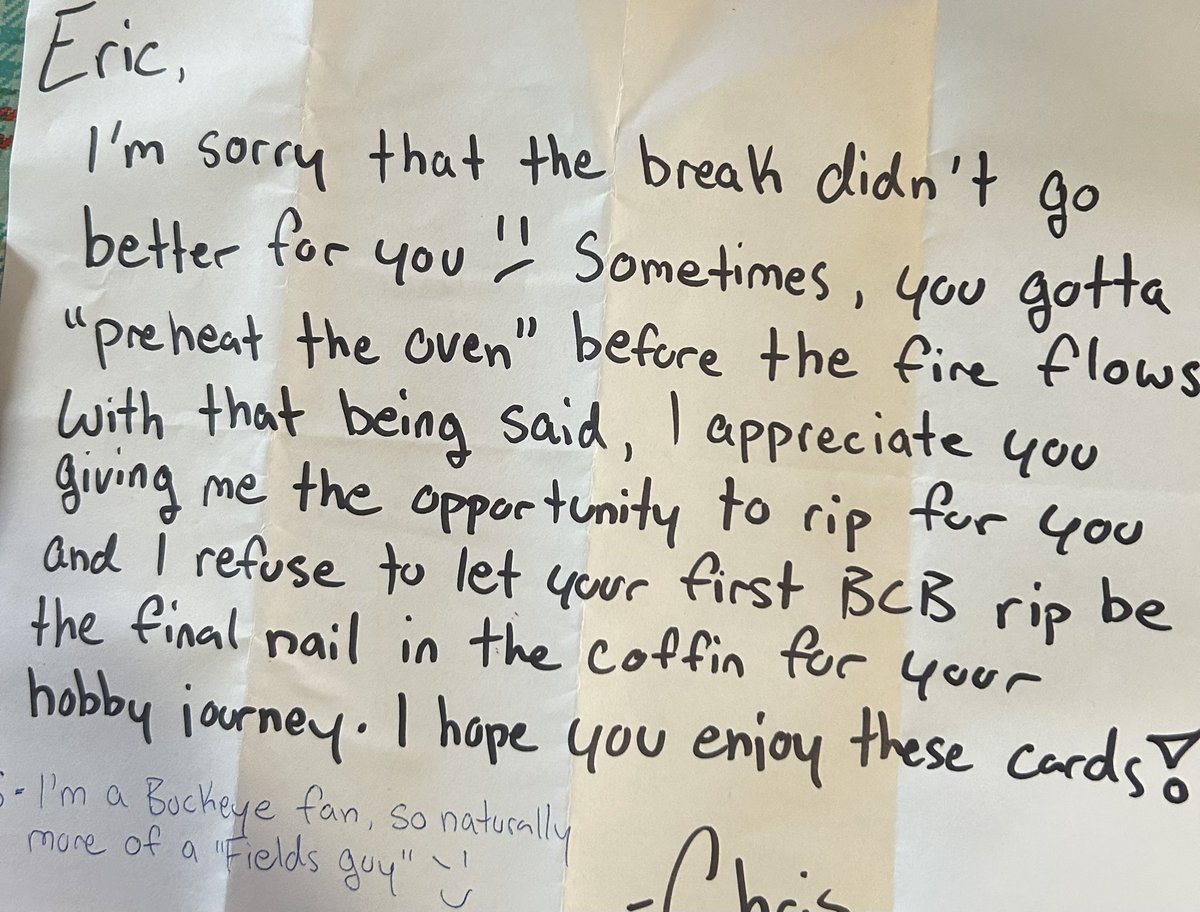 Eric,
I'm sorry that the break didn't go
better for you Sometimes, you gotta
"preheat the oven" before the fire flows
With that being said, I appreciate you
giving me the opportunity to rip for you
and I refuse to let your first BCB rip be
the final nail in the coffin for your
hobby journey. I hope you enjoy these cards!
S- I'm a Buckeye fan, so naturally
more of a "Fields guy"
-Chris